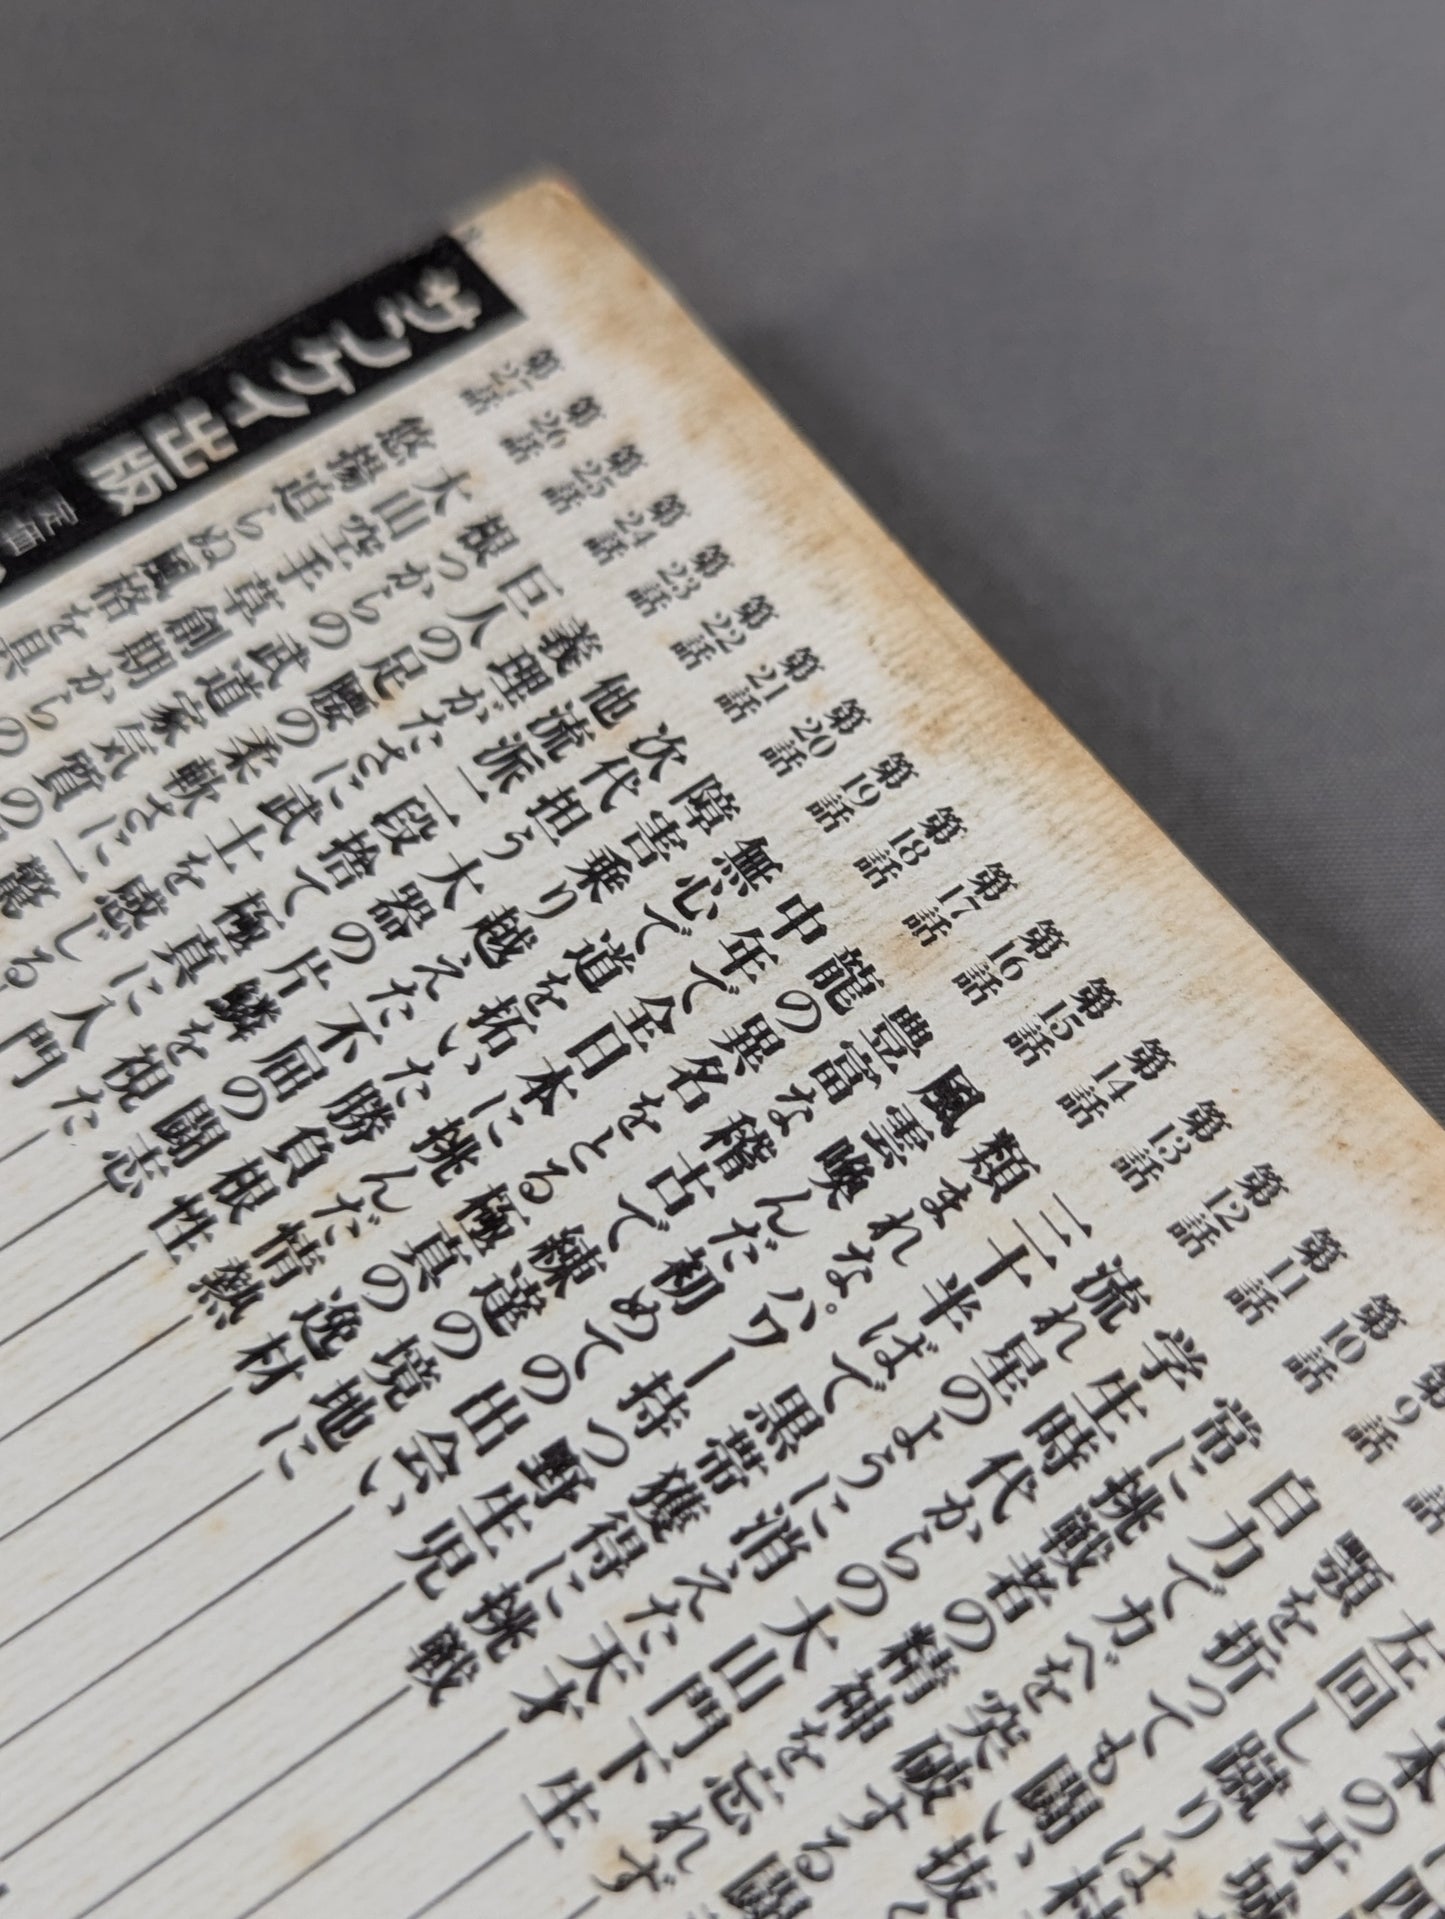 サンケイ出版
定価
第27話 悠揚迫らぬ風格を具
第26話 大山空手の草創期からの
第25話 根っからの武道家気質の
第24話 巨人の足腰の柔軟さに一驚
第23話 義理がたさに武士を感じる
第22話 他流派二段捨て極真に入門
第21話 次代担う大器の片鱗を視た
第20話 障害乗り越えた不屈の闘志
第19話 無心で道を拓いた勝負根性
第18話 中年で全日本に挑んだ情熱
第17話 龍の異名をとる極真の逸材
第16話 豊富な稽古で練達の境地に
第15話 風雲喚んだ初めての出会い
第14話 類まれな。パワー持つ野生児
第13話 三十半ばで黒帯獲得に挑戦
第12話 流れ星のように消えた天才
第11話 学生時代からの大山門下生
第10話 常に挑戦者の精神を忘れず
第9話 自力でカベを突破する闘
話 顎を折っても闘い抜
左回し蹴りは村
本の牙城
四